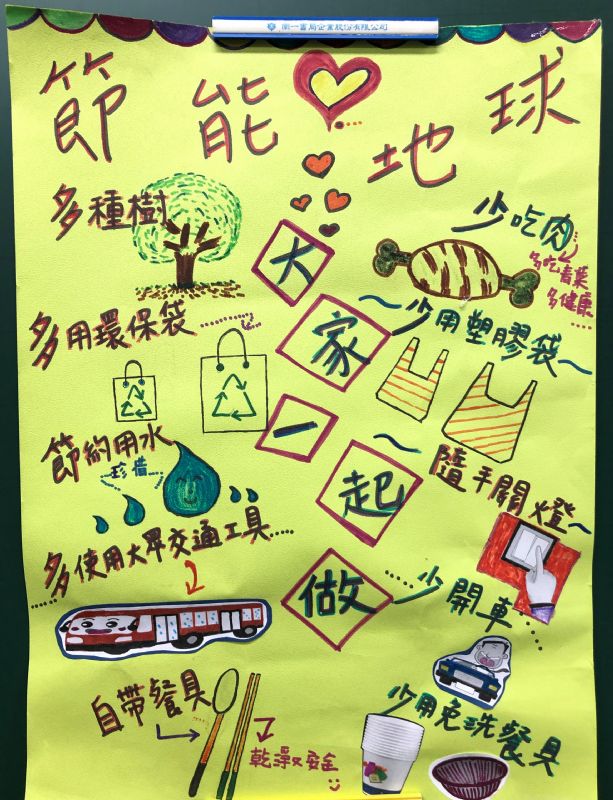 南一書局企業股份有限公司
節能♥地球
多種樹
少吃肉
多吃青菜
多健康
多用環保袋
~少用塑膠袋~
大家一起做
節約用水
珍惜
~隨手關燈~
多使用大眾交通工具
少開車
自帶餐具
乾淨又安全
少用免洗餐具